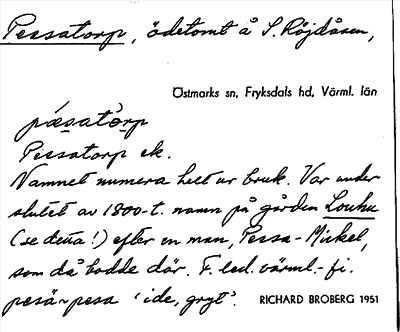 Pessatorp, ödetomt å S. Röjdåsen,
Östmarks sn, Fryksdals hd, Värml. län
pæsatòrp
Pessatorp ek.
Namnet numera helt ur bruk. Var under
slutet av 1800-t. namn på gården Louhu
(se detta!) efter en man, Pessa-Mickel,
som då bodde där. F. led. värml.-fi.
pesä ~ pesa 'ide, gryt'. RICHARD BROBERG 1951